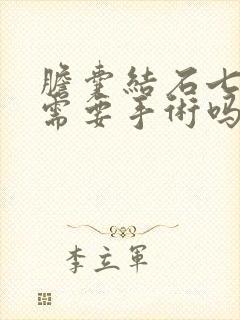 膽囊結石七
需要手術嗎
李立軍